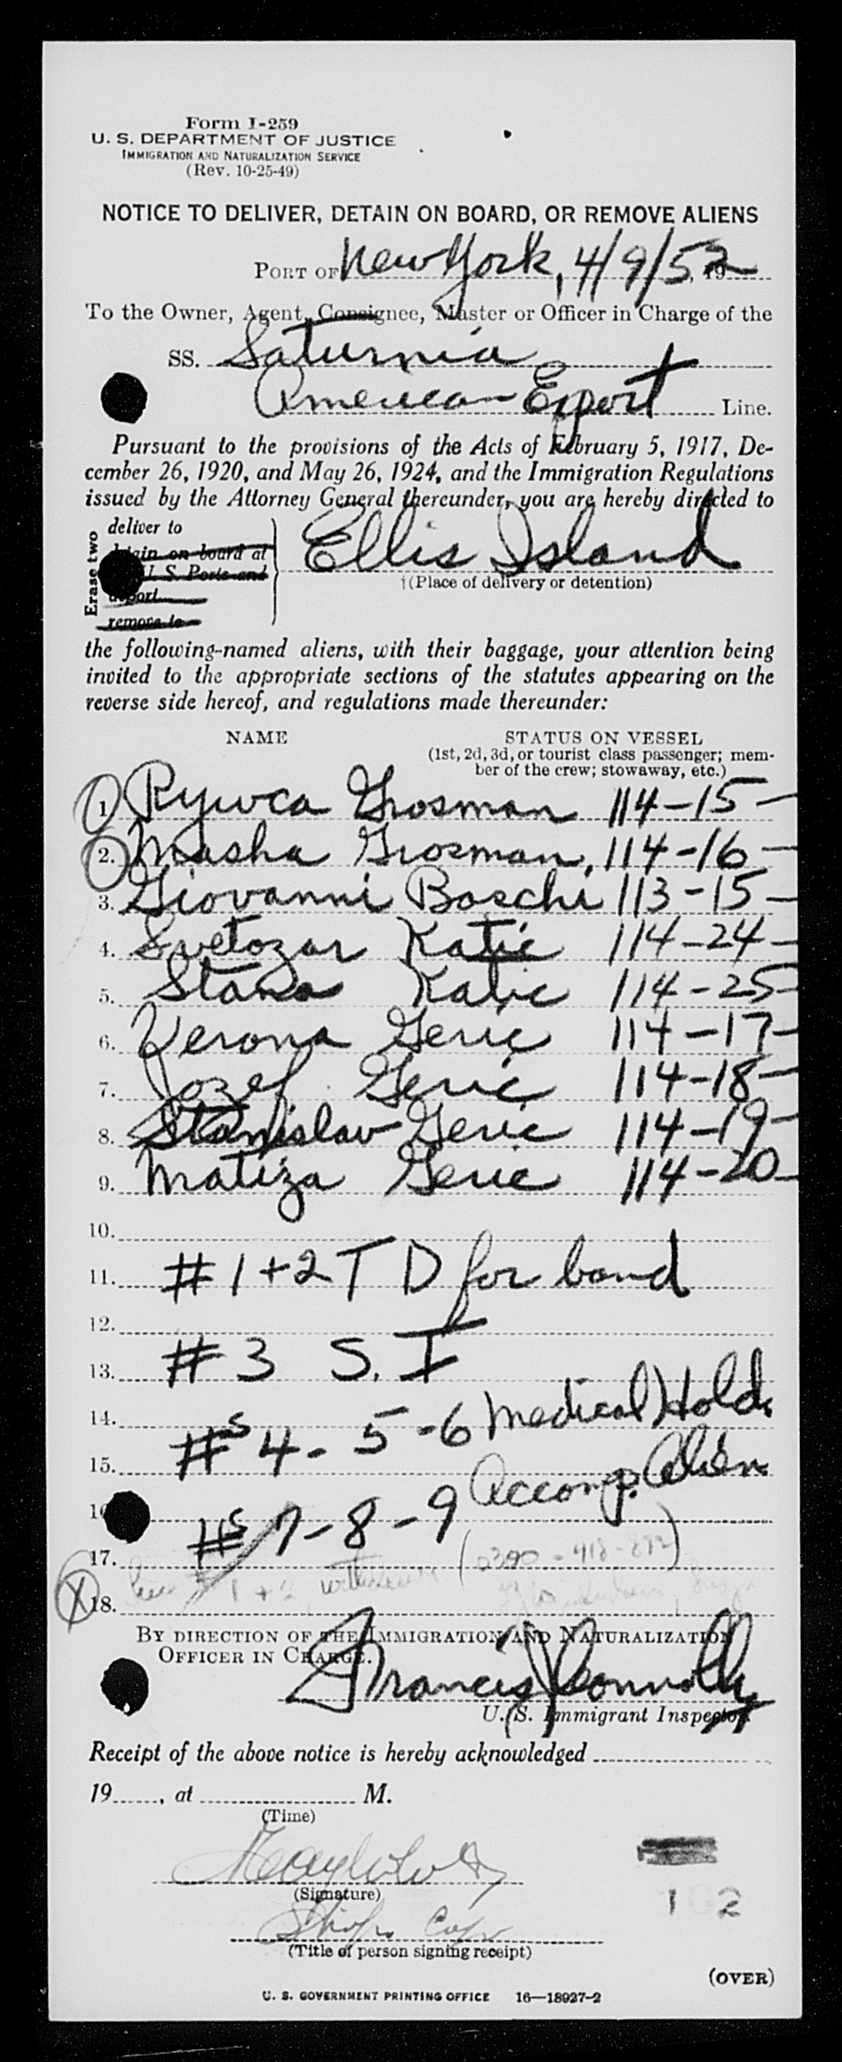 Form I-259
U. S. DEPARTMENT OF JUSTICE
IMMIGRATION AND NATURALIZATION SERVICE
(Rev. 10-25-49)
NOTICE TO DELIVER, DETAIN ON BOARD, OR REMOVE ALIENS
PORT OF New York, 4/9/52, 19
To the Owner, Agent, Consignee, Master or Officer in Charge of the
SS. Saturnia
American Export Line.
Pursuant to the provisions of the Acts of February 5, 1917, De-
cember 26, 1920, and May 26, 1924, and the Immigration Regulations
issued by the Attorney General thereunder, you are hereby directed to
Erase two
deliver to
detain on board at
U. S. Ports and
deport
remove to
Ellis Island
†(Place of delivery or detention)
the following-named aliens, with their baggage, your attention being
invited to the appropriate sections of the statutes appearing on the
reverse side hereof, and regulations made thereunder:
NAME STATUS ON VESSEL
(1st, 2d, 3d, or tourist class passenger; mem-
ber of the crew; stowaway, etc.)
1. Rywca Grosman 114-15-
2. Masha Grosman, 114-16-
3. Giovanni Boschi 113-15-
4. Svetozar Katic 114-24-
5. Stana Katic 114-25-
6. Verona Geric 114-17-
7. Jozef Geric 114-18-
8. Stanislav Geric 114-19-
9. Matiza Geric 114-20-
10.
11. #1+2 T D for bond
12.
13. #3 S. I
14. #s 4-5-6 Medical Hold.
15. Accomp. Alien
16. #s 7-8-9
17. 1+2 (0390-418-892)
X 18.
BY DIRECTION OF THE IMMIGRATION AND NATURALIZATION
OFFICER IN CHARGE.
Francis J Connolly
U. S. Immigrant Inspector.
Receipt of the above notice is hereby acknowledged
19......, at .................. M.
(Time)
(Signature)
(Title of person signing receipt)
(OVER)
U. S. GOVERNMENT PRINTING OFFICE 16—18927-2